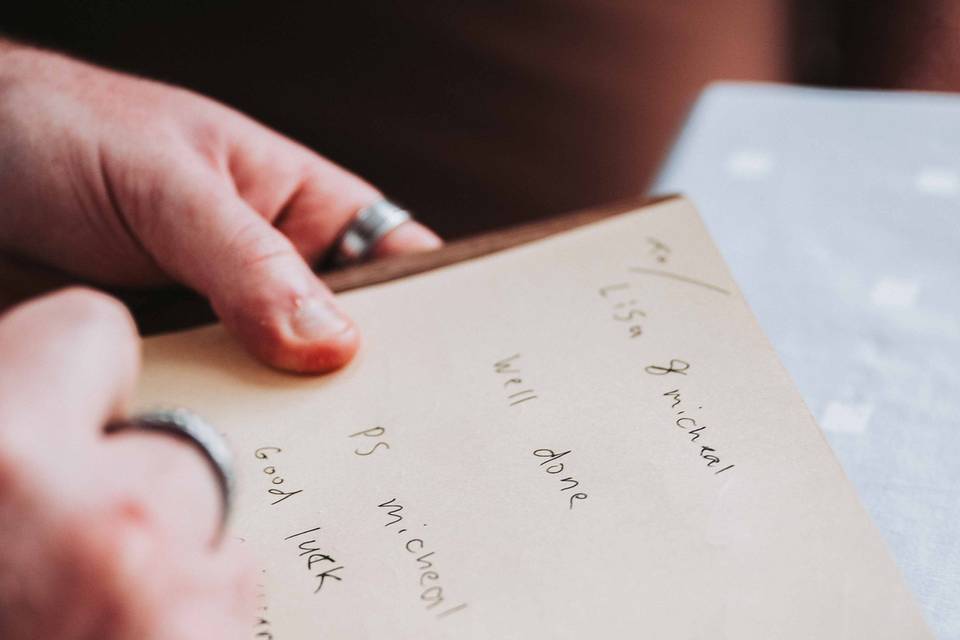 To/
Lisa & micheal
Well done
PS micheal
Good luck